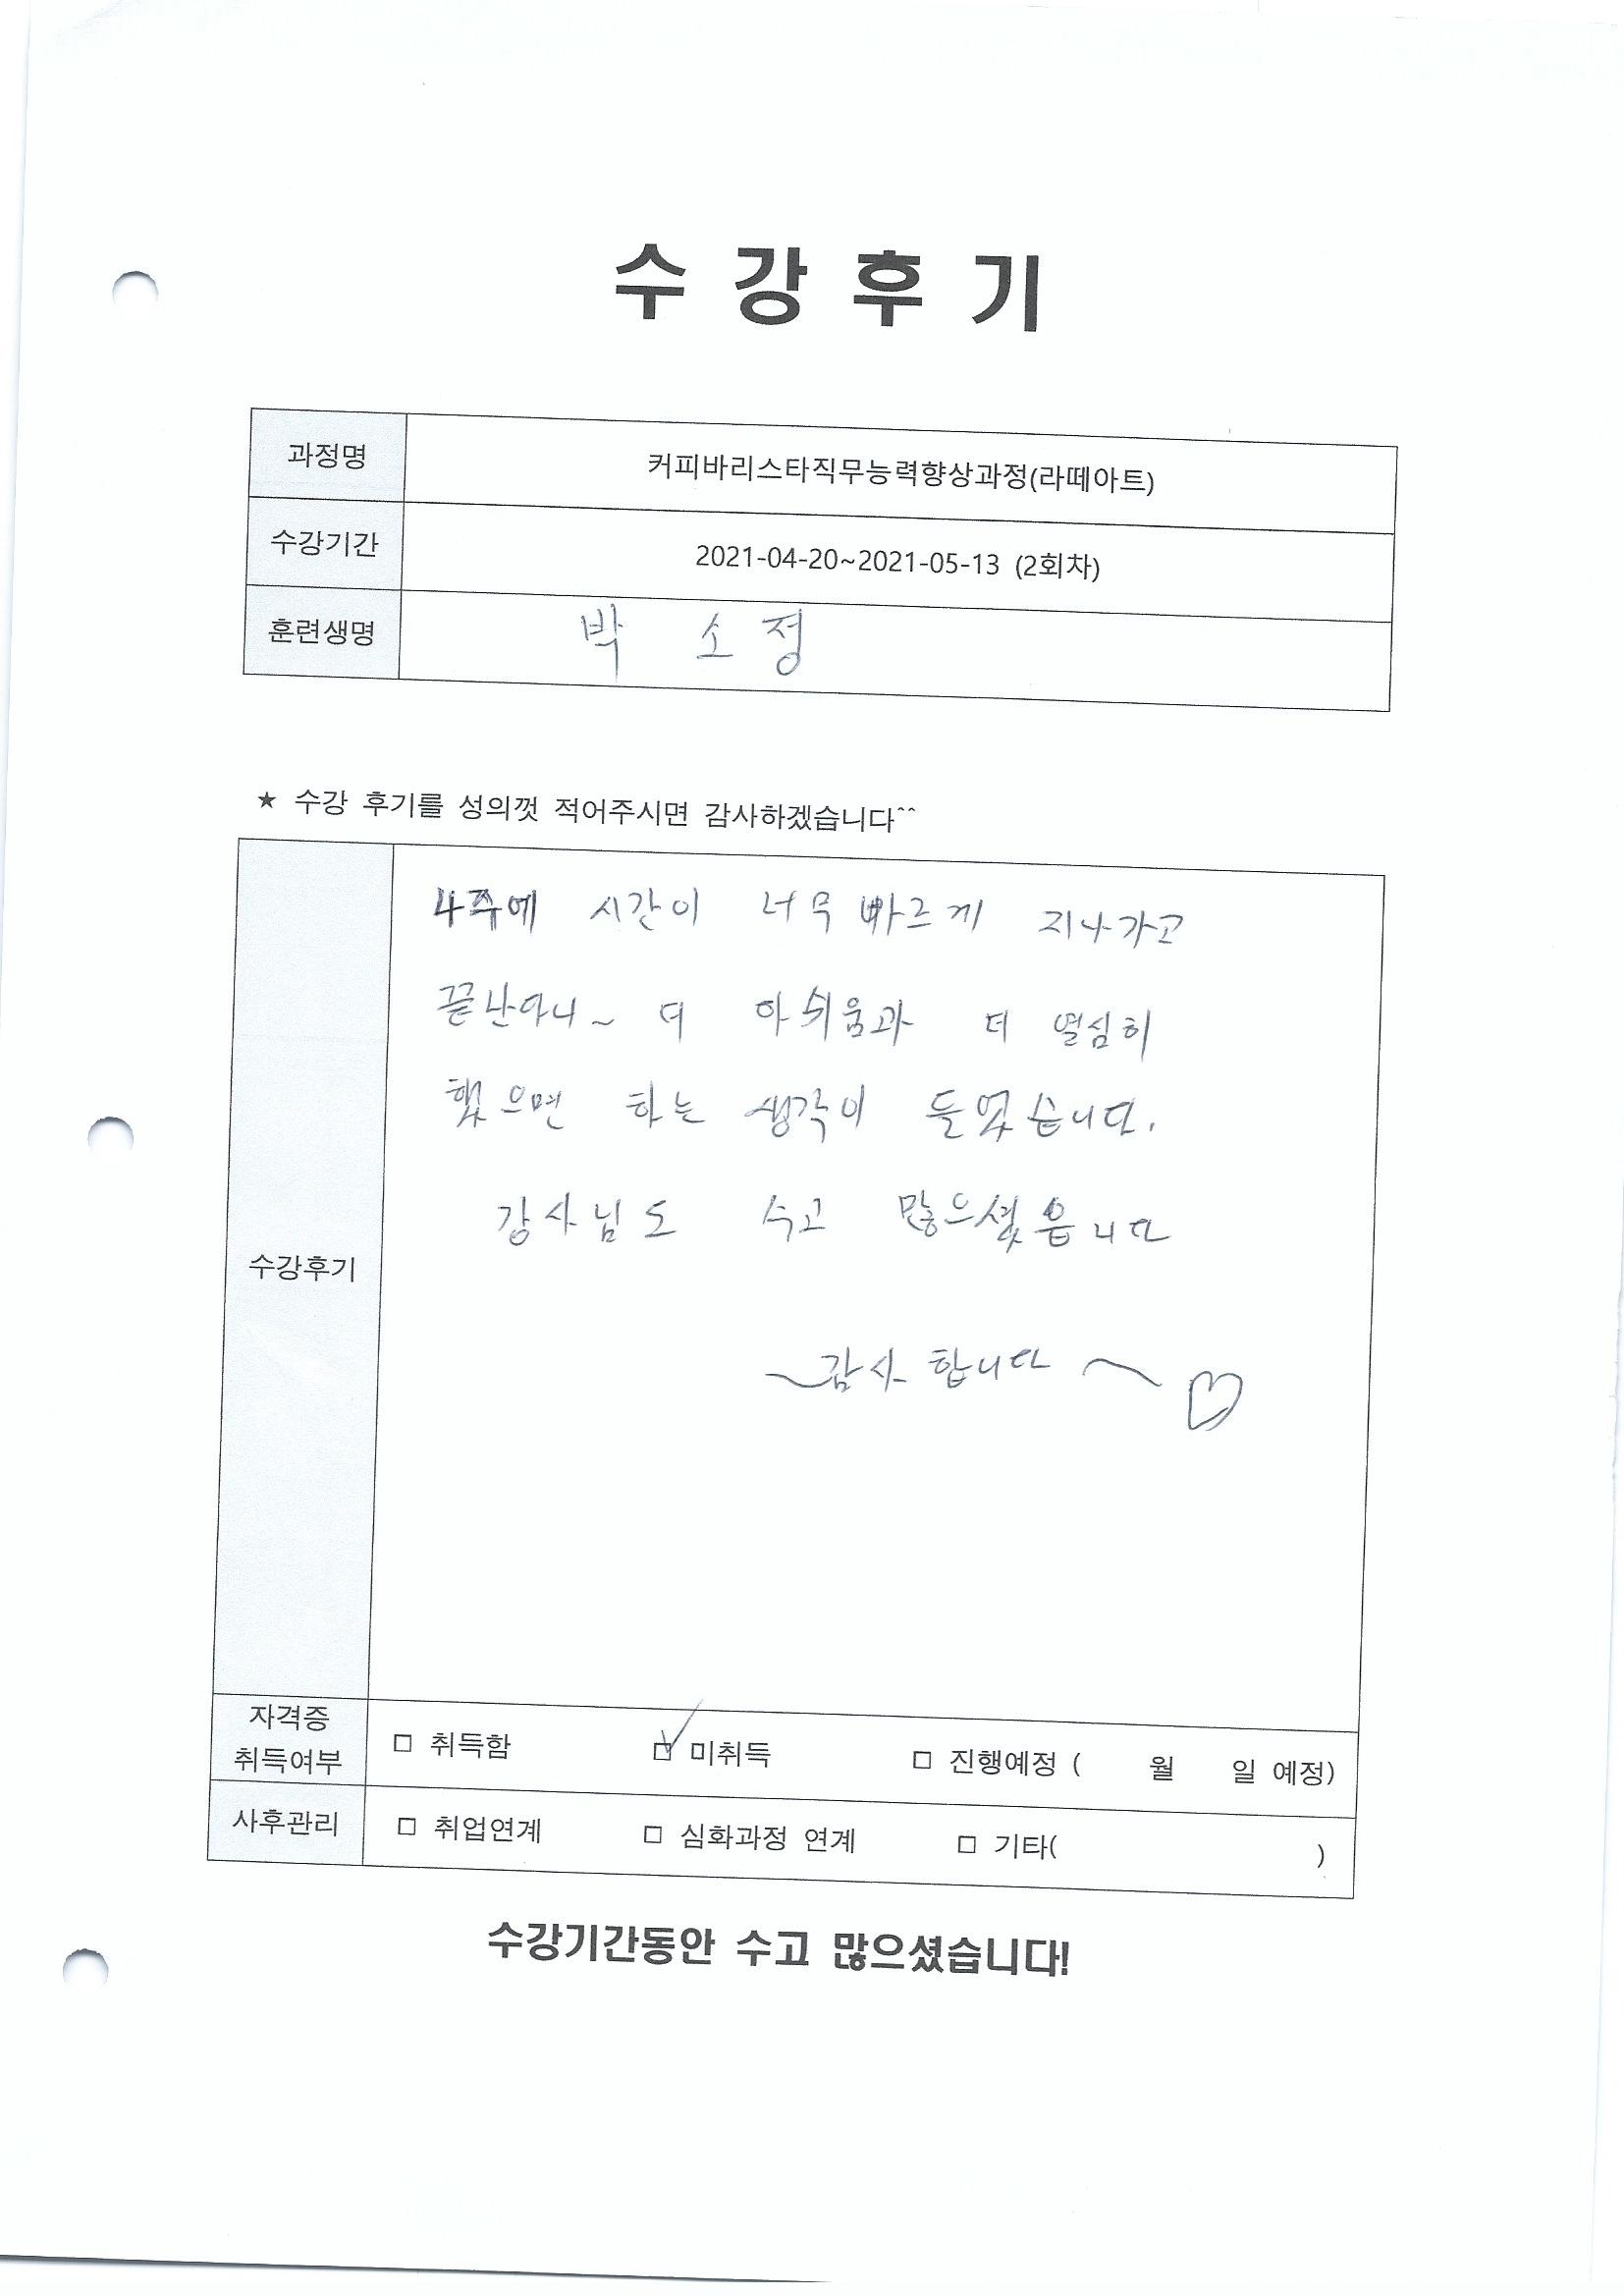 수강후기
과정명 커피바리스타직무능력향상과정(라떼아트)
수강기간 2021-04-20~2021-05-13 (2회차)
훈련생명 박 소 정
★ 수강 후기를 성의껏 적어주시면 감사하겠습니다^^
4주에 시간이 너무 빠르게 지나가고
끝난다니~ 더 아쉬움과 더 열심히
했으면 하는 생각이 들었습니다.
강사님도 수고 많으셨읍니다
수강후기
~감사합니다~♡
자격증
취득여부 □ 취득함 ☑ 미취득 □ 진행예정 ( 월 일 예정)
사후관리 □ 취업연계 □ 심화과정 연계 □ 기타( )
수강기간동안 수고 많으셨습니다!